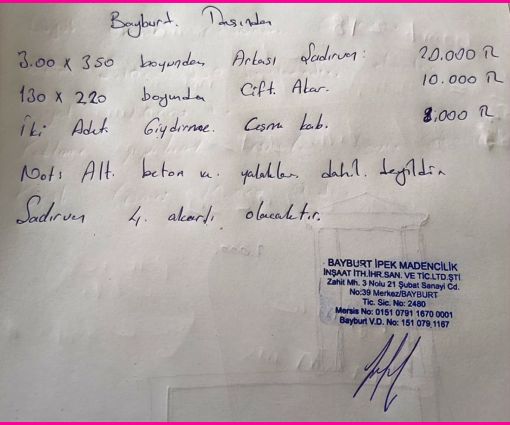 Bayburt. Taşından
3.00 x 350 boyunden Arkası Şadırvan: 20.000 TL
130 x 220 boyunda Çift. Akar. 10.000 TL
İki Adet Giydirme. Çeşme kab. 8,000 TL
Not: Alt. beton ve yalaklar dahil. değildir
Şadırvan 4. akarlı olacaktır.
BAYBURT İPEK MADENCİLİK
İNŞAAT İTH.İHR.SAN. VE TİC.LTD.ŞTİ
Zahit Mh. 3 Nolu 21 Şubat Sanayi Cd.
No:39 Merkez/BAYBURT
Tic. Sic. No: 2480
Mersis No: 0151 0791 1670 0001
Bayburt V.D. No: 151 079 1167